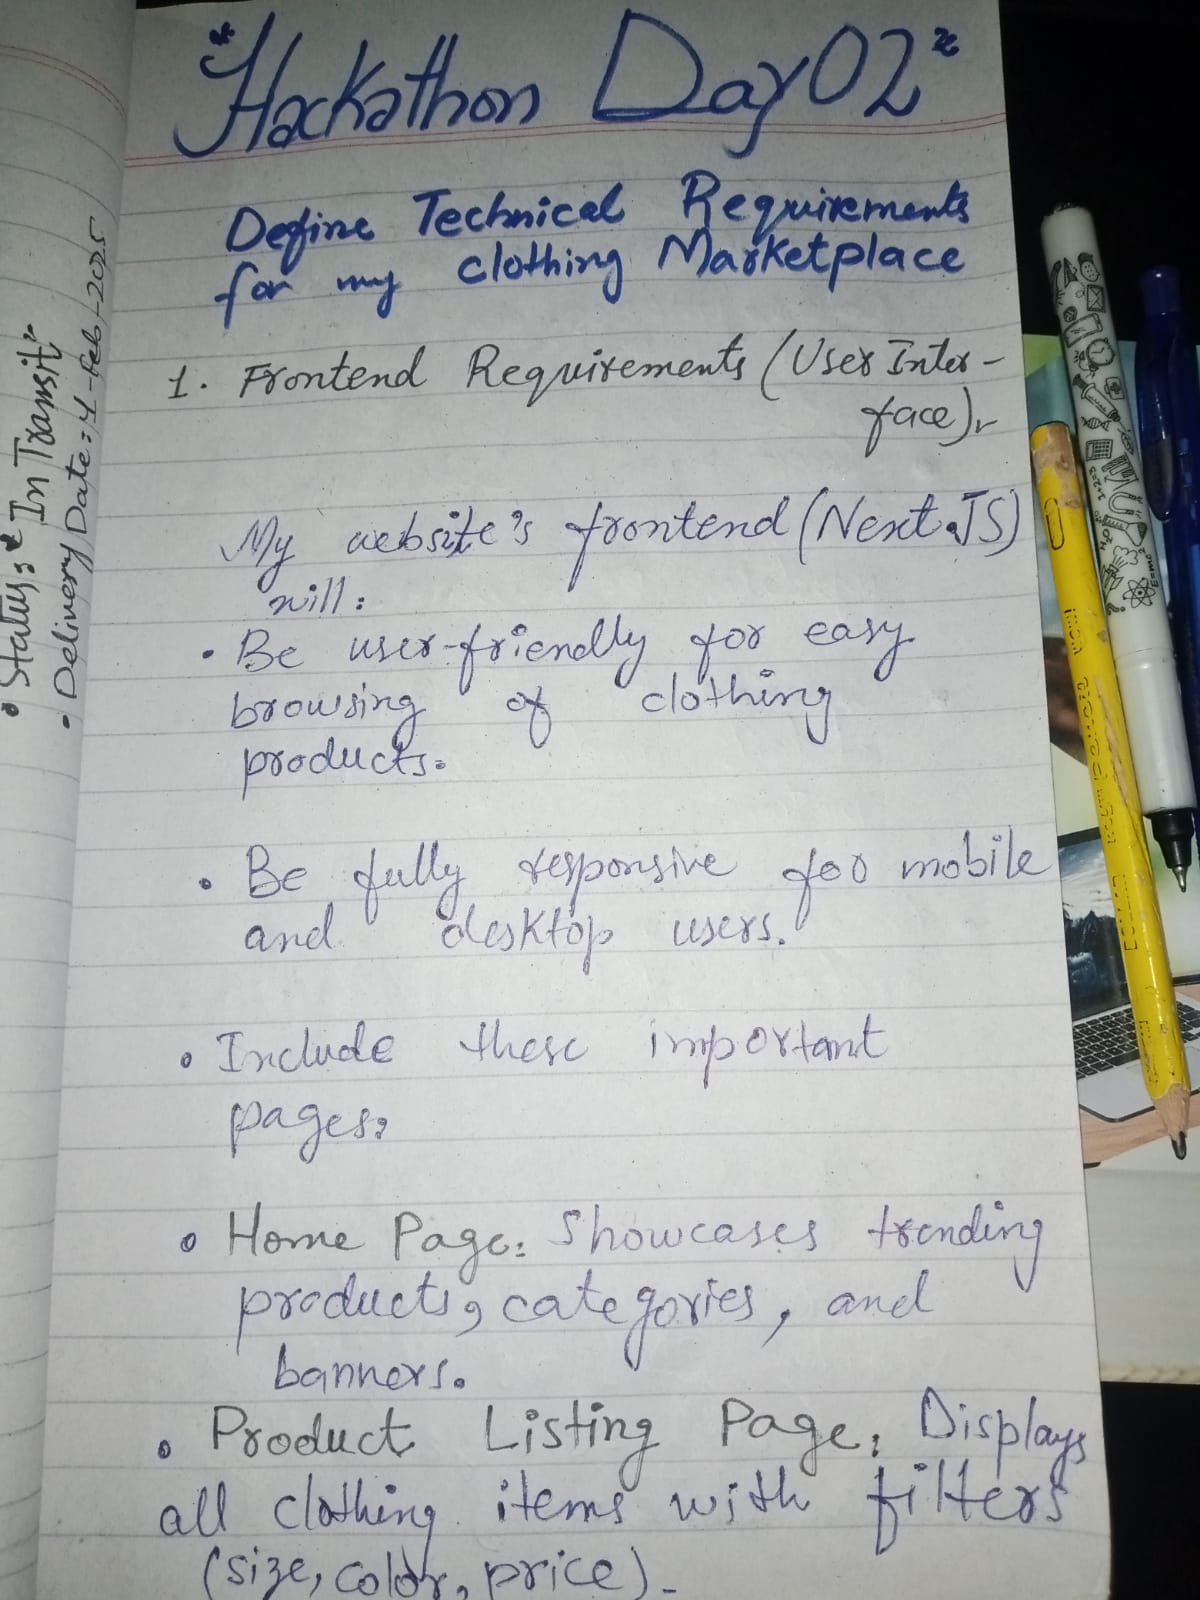 "Hackathon Day 02"
Define Technical Requirements
for my clothing Marketplace
1. Frontend Requirements (User Inter-
face),
My website's frontend (Next.JS)
will:
• Be user-friendly for easy
browsing of clothing
products.
• Be fully responsive for mobile
and desktop users.
• Include these important
pages:
• Home Page: Showcases trending
products, categories, and
banners.
• Product Listing Page: Displays
all clothing items with filters
(size, color, price).
• Status: "In Transit"
• Delivery Date: 4-Feb-2025
E=mc²
H₂O